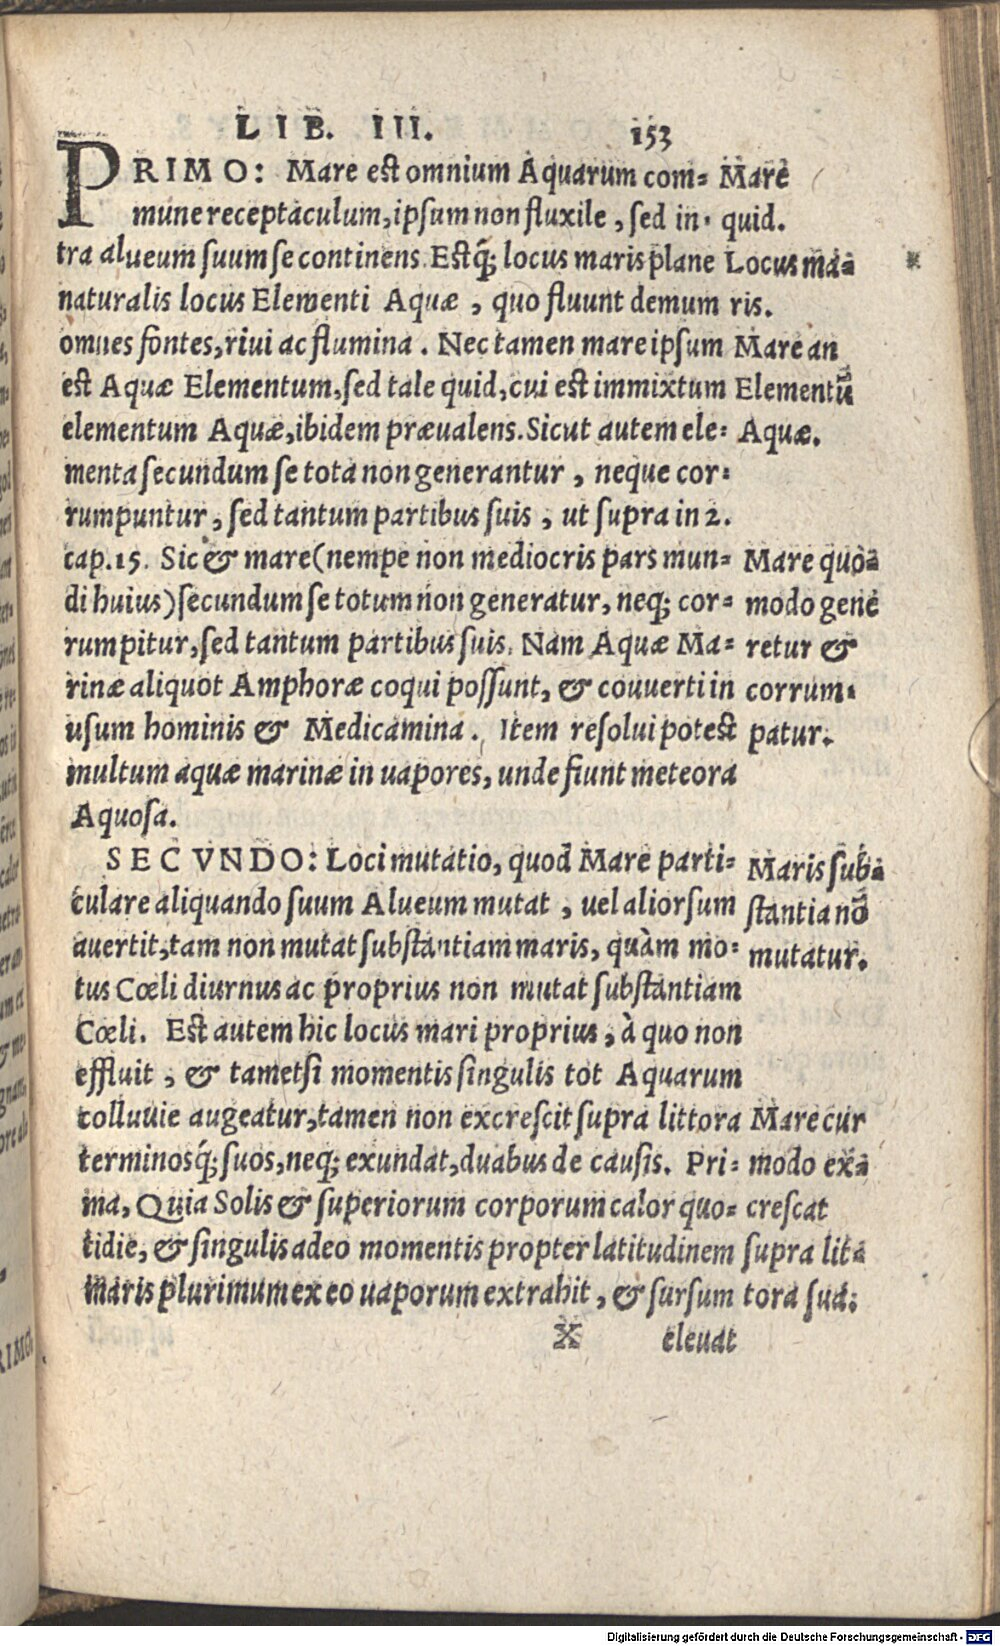 LIB. III. 153
PRIMO: Mare est omnium Aquarum com=
mune receptaculum, ipsum non fluxile, sed in=
tra alueum suum se continens. Estq́; locus maris plane
naturalis locus Elementi Aquæ, quo fluunt demum
omnes fontes, rivi ac flumina. Nec tamen mare ipsum
est Aquæ Elementum, sed tale quid, cui est immixtum
elementum Aquæ, ibidem prævalens. Sicut autem ele=
menta secundum se tota non generantur, neque cor=
rumpuntur, sed tantum partibus suis, ut supra in 2.
cap. 15. Sic & mare (nempe non mediocris pars mun=
di huius) secundum se totum non generatur, neq; cor=
rumpitur, sed tantum partibus suis. Nam Aquæ Ma=
rinæ aliquot Amphoræ coqui possunt, & couverti in
usum hominis & Medicamina. Item resolui potest
multum aquæ marinæ in uapores, unde fiunt meteora
Aquosa.
SECVNDO: Loci mutatio, quod Mare parti=
culare aliquando suum Alueum mutat, uel aliorsum
avertit, tam non mutat substantiam maris, quàm mo=
tus Cœli diurnus ac proprius non mutat substantiam
Cœli. Est autem hic locus mari proprius, à quo non
effluit, & tametsi momentis singulis tot Aquarum
colluvie augeatur, tamen non excrescit supra littora
terminosq́; suos, neq; exundat, duabus de causis. Pri=
ma, Quia Solis & superiorum corporum calor quo=
tidie, & singulis adeo momentis propter latitudinem
maris plurimum ex eo uaporum extrahit, & sursum
X elevat
Mare
quid.
Locus ma=
ris.
Mare an
Elementū
Aquæ.
Mare quo=
modo gene
retur &
corrum=
patur.
Maris sub=
stantia nō
mutatur.
Mare cur
modo ex=
crescat
supra lit=
tora sua:
Digitalisierung gefördert durch die Deutsche Forschungsgemeinschaft - DFG